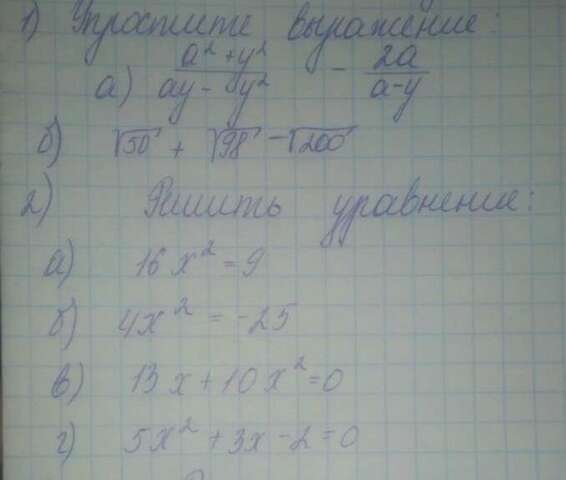 1) Упростите выражение:
а) (a² + y²)/(ay - y²) - 2a/(a-y)
б) √50 + √98 - √200
2) Решить уравнение:
а) 16x² = 9
б) 4x² = -25
в) 13x + 10x² = 0
г) 5x² + 3x - 2 = 0